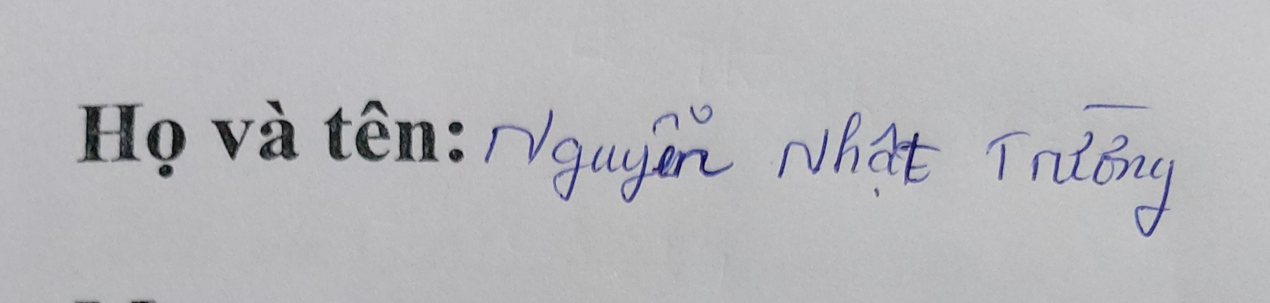 Họ và tên: Nguyễn Nhật Trường